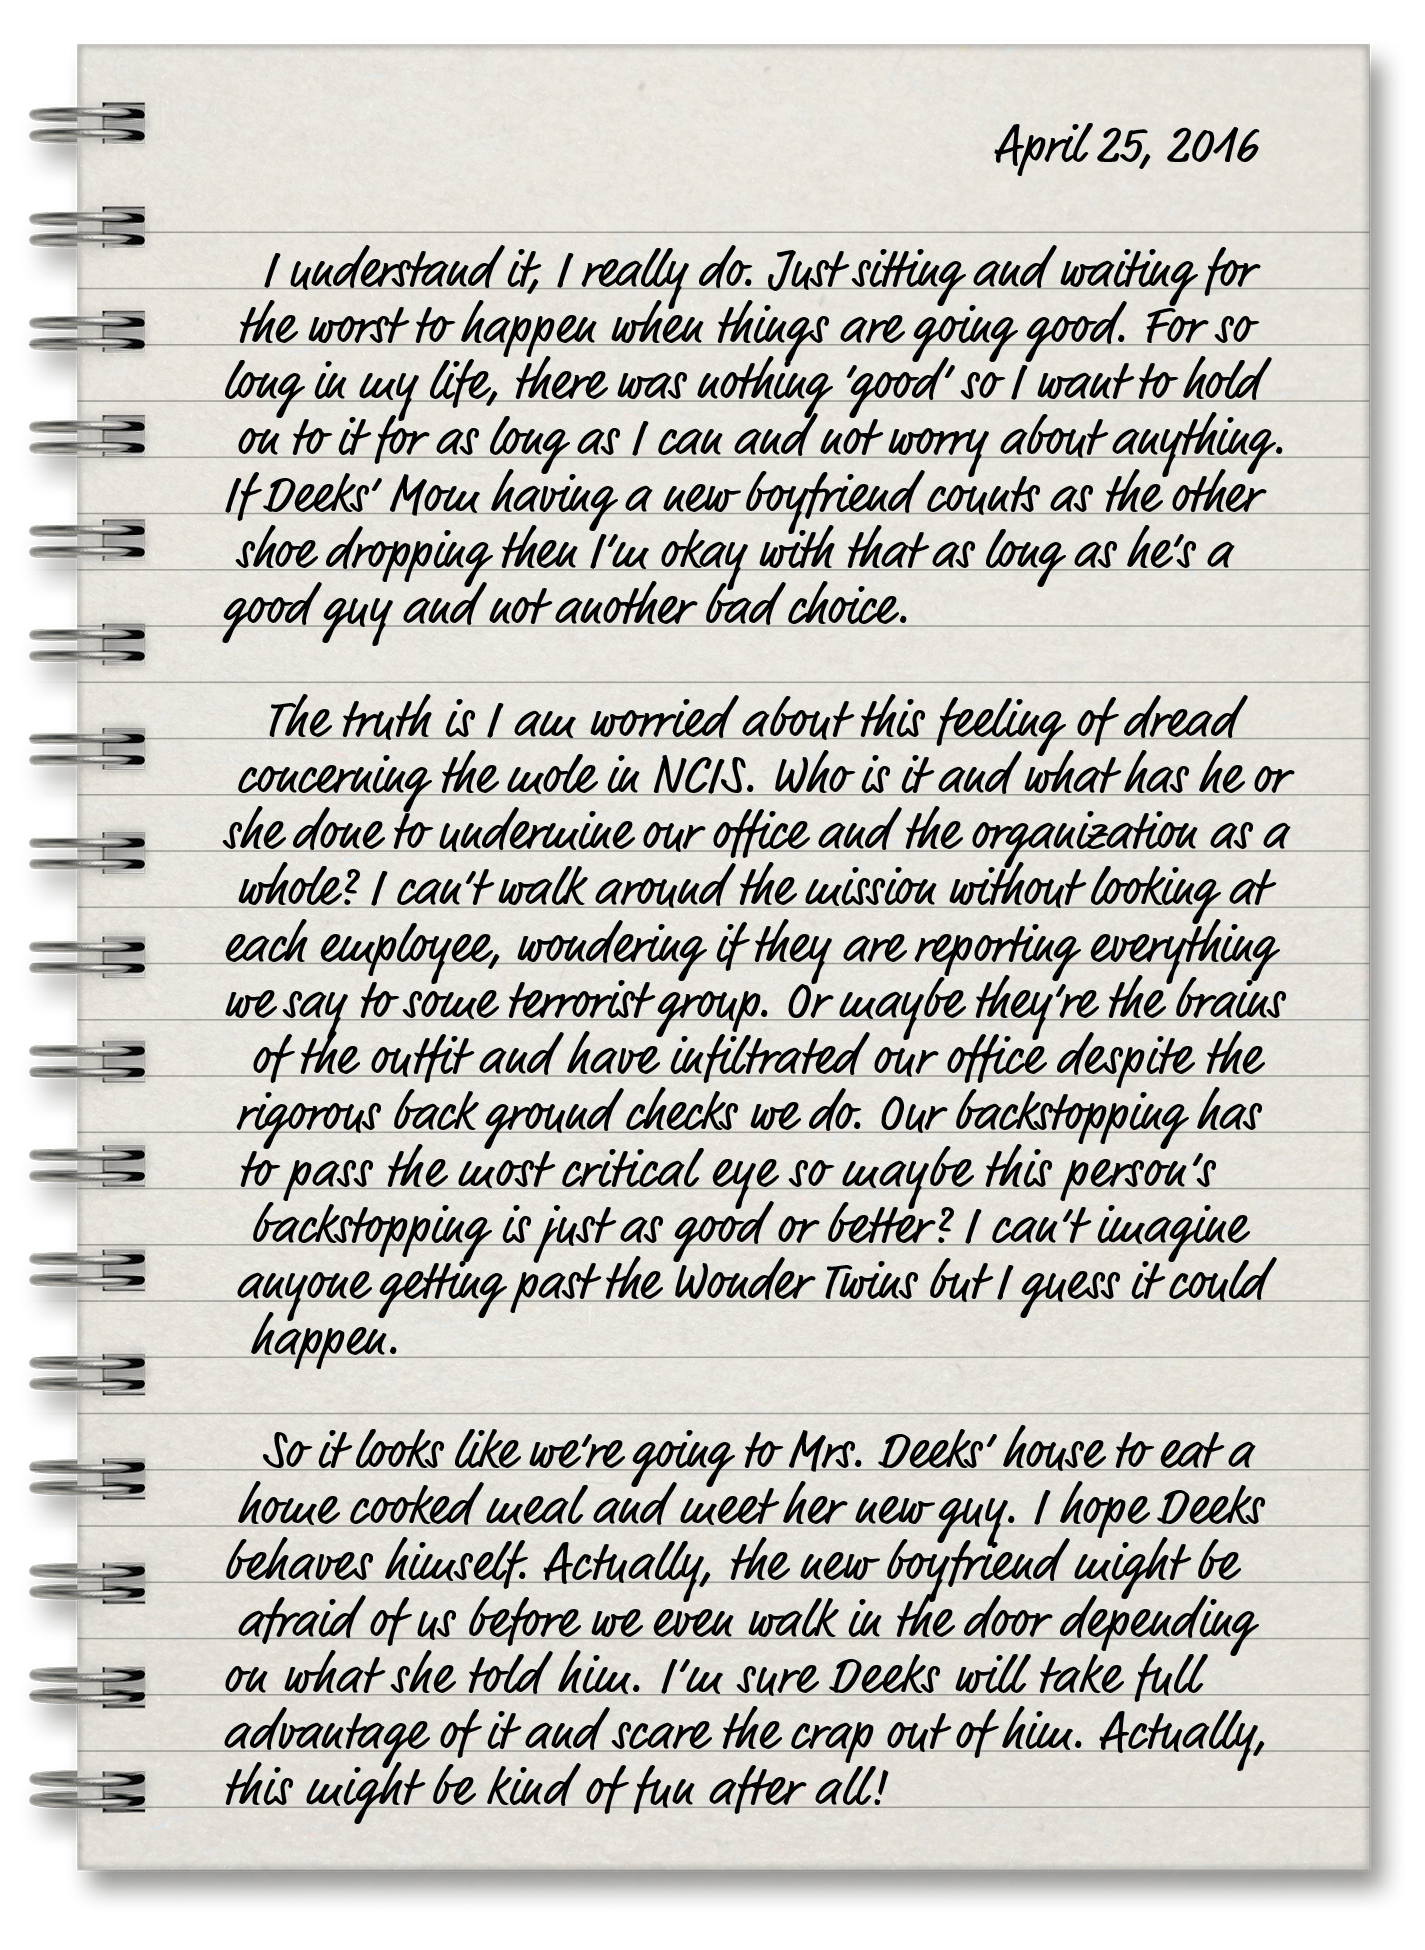 April 25, 2016
I understand it, I really do. Just sitting and waiting for
the worst to happen when things are going good. For so
long in my life, there was nothing 'good' so I want to hold
on to it for as long as I can and not worry about anything.
If Deeks' Mom having a new boyfriend counts as the other
shoe dropping then I'm okay with that as long as he's a
good guy and not another bad choice.
The truth is I am worried about this feeling of dread
concerning the mole in NCIS. Who is it and what has he or
she done to undermine our office and the organization as a
whole? I can't walk around the mission without looking at
each employee, wondering if they are reporting everything
we say to some terrorist group. Or maybe they're the brains
of the outfit and have infiltrated our office despite the
rigorous back ground checks we do. Our backstopping has
to pass the most critical eye so maybe this person's
backstopping is just as good or better? I can't imagine
anyone getting past the Wonder Twins but I guess it could
happen.
So it looks like we're going to Mrs. Deeks' house to eat a
home cooked meal and meet her new guy. I hope Deeks
behaves himself. Actually, the new boyfriend might be
afraid of us before we even walk in the door depending
on what she told him. I'm sure Deeks will take full
advantage of it and scare the crap out of him. Actually,
this might be kind of fun after all!